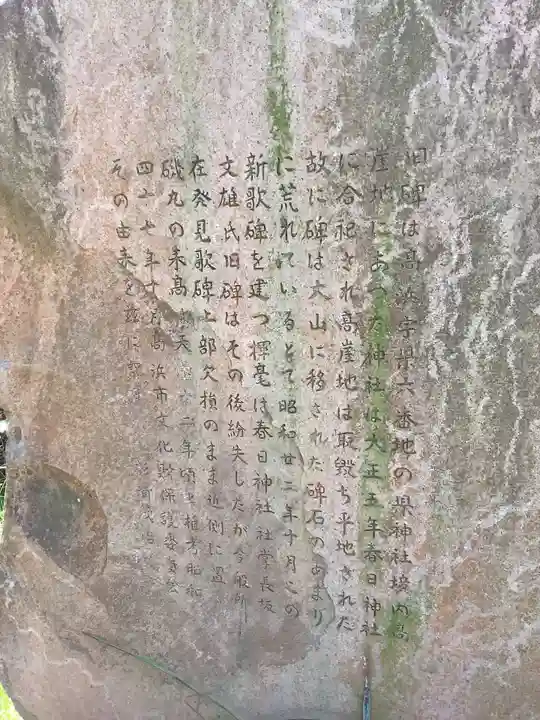 旧碑は高浜字県六番地の県神社境内高
崖地にあつた神社は大正五年春日神社
に合祀され高崖地は取毀ち平地された
故に碑は大山に移された碑石のあまり
に荒れているとて昭和廿二年十月この
新歌碑を建つ揮毫は春日神社社掌長坂
文雄氏旧碑はその後紛失したが今般所
在発見歌碑上部欠損のまま近側に置
磯丸の来高 天 二年頃と推考昭和
四十七年十月高浜市文化財保護委員会
その由来を茲に記す